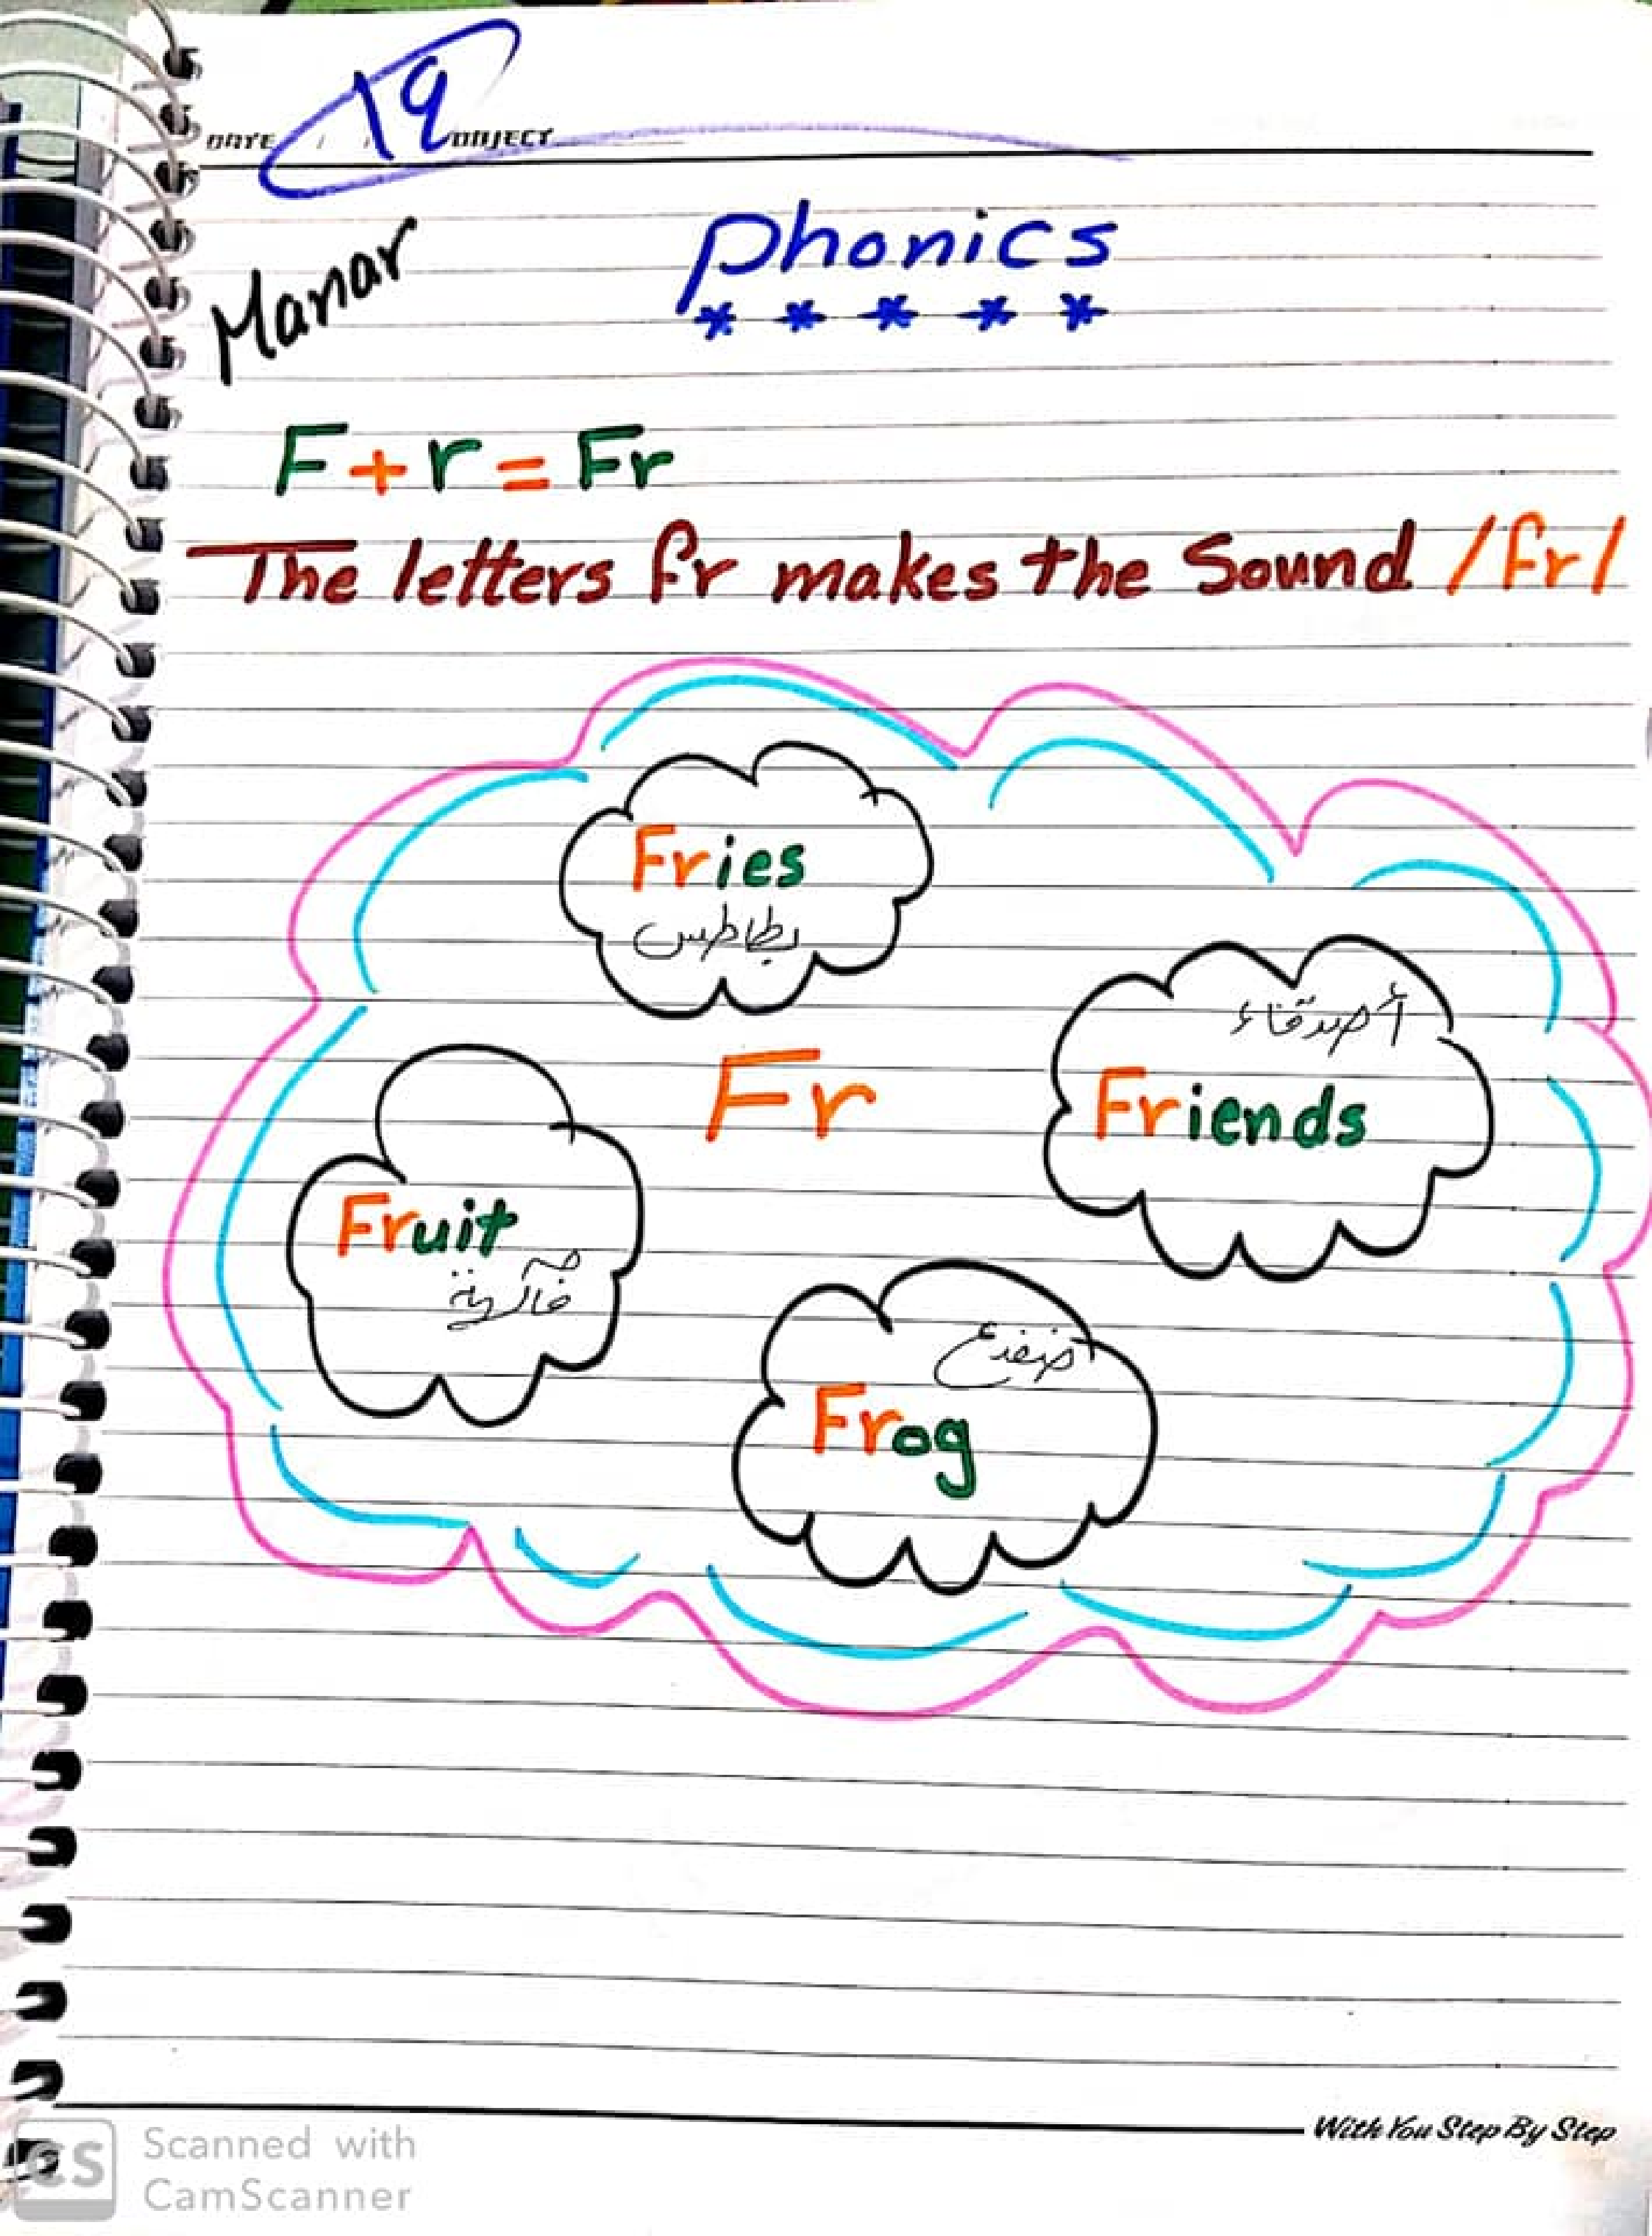 19
DATE / / OBJECT
Manar
Phonics
* * * * *
F + r = Fr
The letters fr makes the Sound /fr/
Fries
بطاطس
أصدقاء
Friends
Fr
Fruit
فاكهة
ضفدع
Frog
With You Step By Step
CS
Scanned with
CamScanner